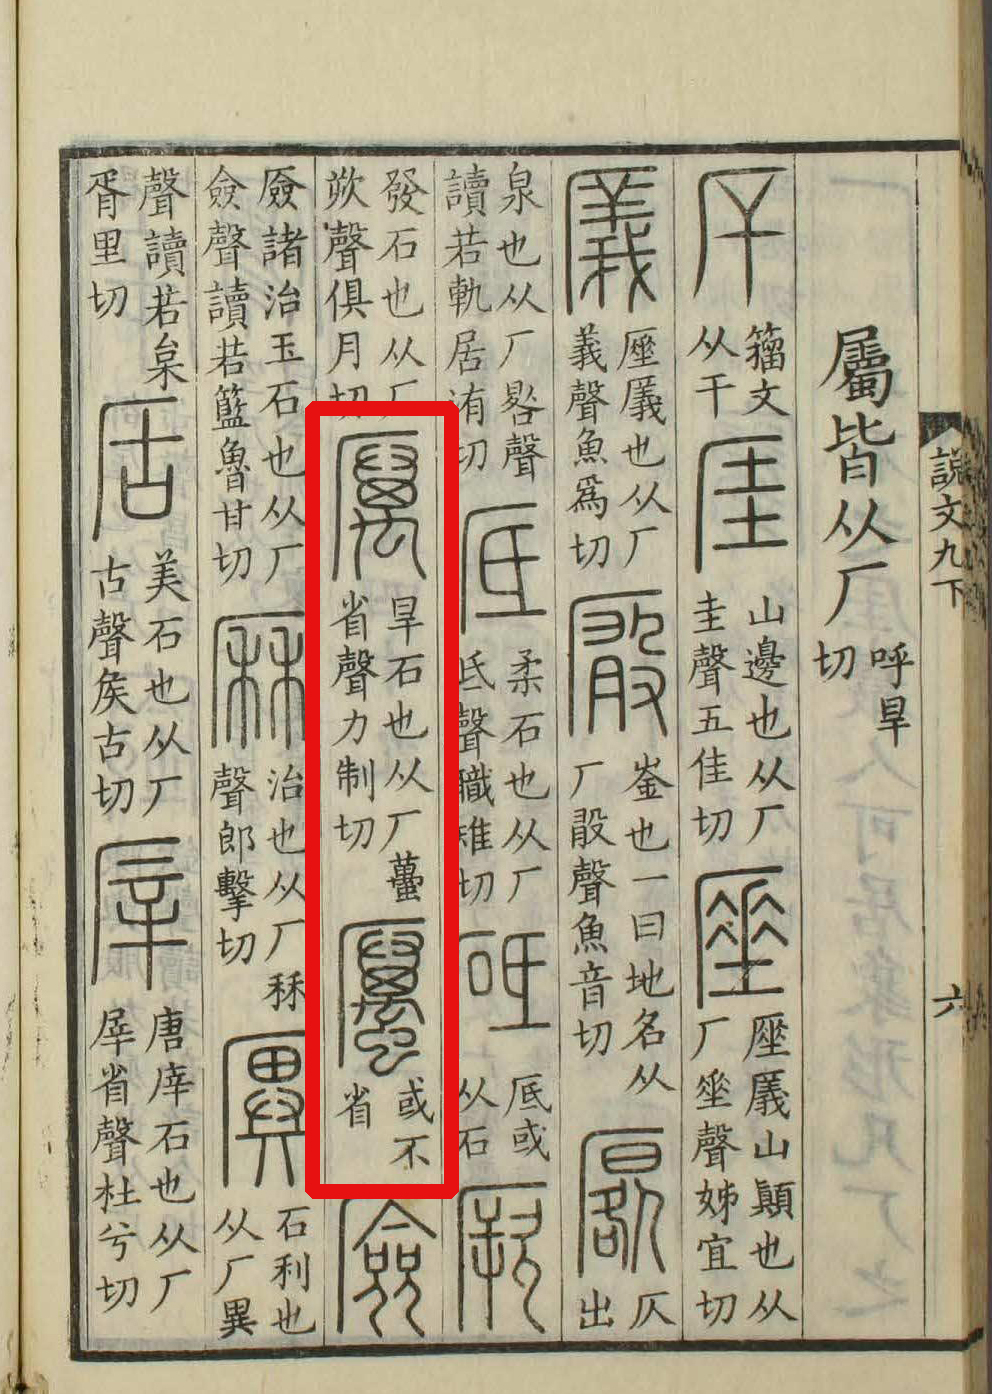 屬皆从厂呼旱切
厈籒文从干厓山邊也从厂圭聲五佳切厜厜㕒山顚也从厂𠂹聲姊宜切
㕒厜㕒也从厂義聲魚爲切厰崟也一曰地名从厂敢聲魚音切厬仄出
泉也从厂晷聲讀若軌居洧切厎柔石也从厂氐聲職雉切砥厎或从石厥
發石也从厂欮聲俱月切厲旱石也从厂蠆省聲力制切𠪱或不省厱
厱諸治玉石也从厂僉聲讀若籃魯甘切厤治也从厂秝聲郎擊切𠪙石利也从厂異
聲讀若枲胥里切㕆美石也从厂古聲矦古切厗唐厗石也从厂屖省聲杜兮切
説文九下
六